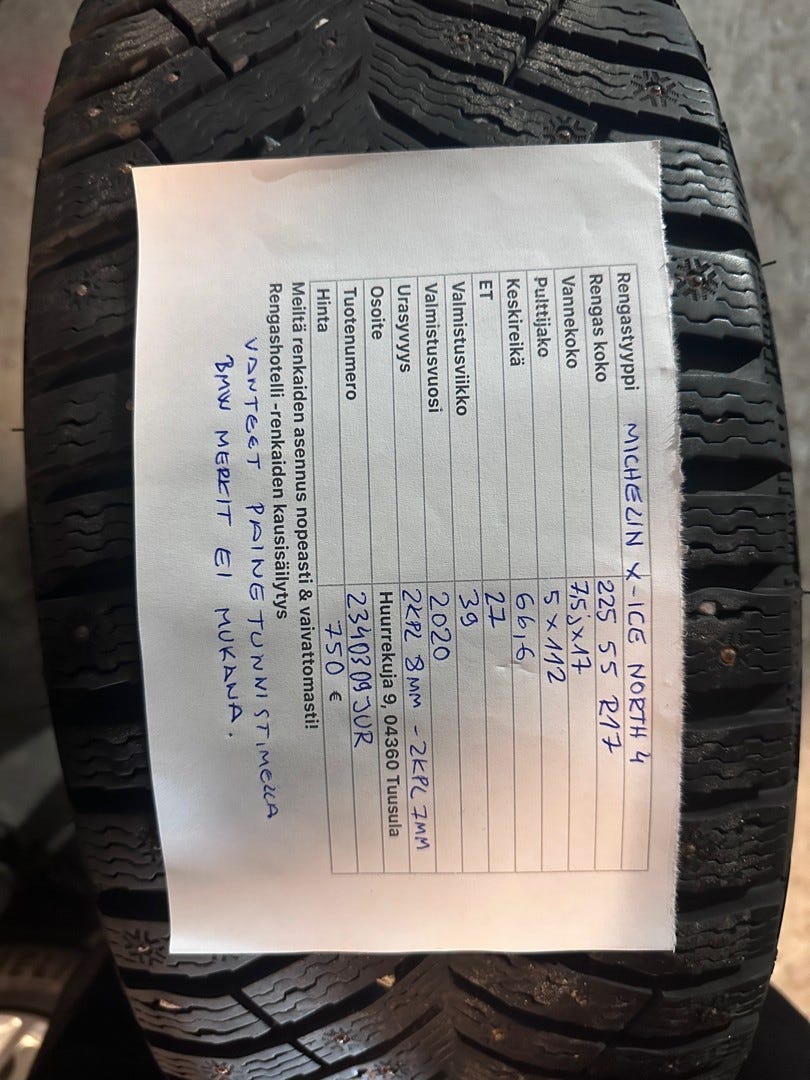 Rengastyyppi MICHELIN X-ICE NORTH 4
Rengas koko 225 55 R17
Vannekoko 7,5jx17
Pulttijako 5x112
Keskireikä 66,6
ET 27
Valmistusviikko 39
Valmistusvuosi 2020
Urasyvyys 2KPL 8MM - 2KPL 7MM
Osoite Huurrekuja 9, 04360 Tuusula
Tuotenumero 2340309JUR
Hinta 750 €
Meiltä renkaiden asennus nopeasti & vaivattomasti!
Rengashotelli -renkaiden kausisäilytys
VANTEET PAINETUNNISTIMELLA
BMW MERKIT EI MUKANA.